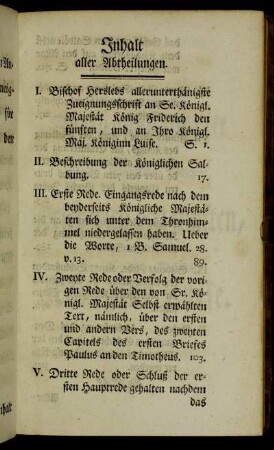 Inhalt
aller Abtheilungen.
I. Bischof Herslebs allerunterthänigste
Zueignungsschrift an Se. Königl.
Majestät König Friderich den
fünften, und an Ihro Königl.
Maj. Königinn Luise. S. 1.
II. Beschreibung der Königlichen Sal-
bung. 17.
III. Erste Rede. Eingangsrede nach dem
beyderseits Königliche Majestä-
ten sich unter dem Thronhim-
mel niedergelassen haben. Ueber
die Worte, 1 B. Samuel. 28.
v. 13. 89.
IV. Zweyte Rede oder Verfolg der vori-
gen Rede über den von Sr. Kö-
nigl. Majestät Selbst erwählten
Text, nämlich, über den ersten
und andern Vers, des zweyten
Capitels des ersten Briefes
Paulus an den Timotheus. 103.
V. Dritte Rede oder Schluß der er-
sten Hauptrede gehalten nachdem
das